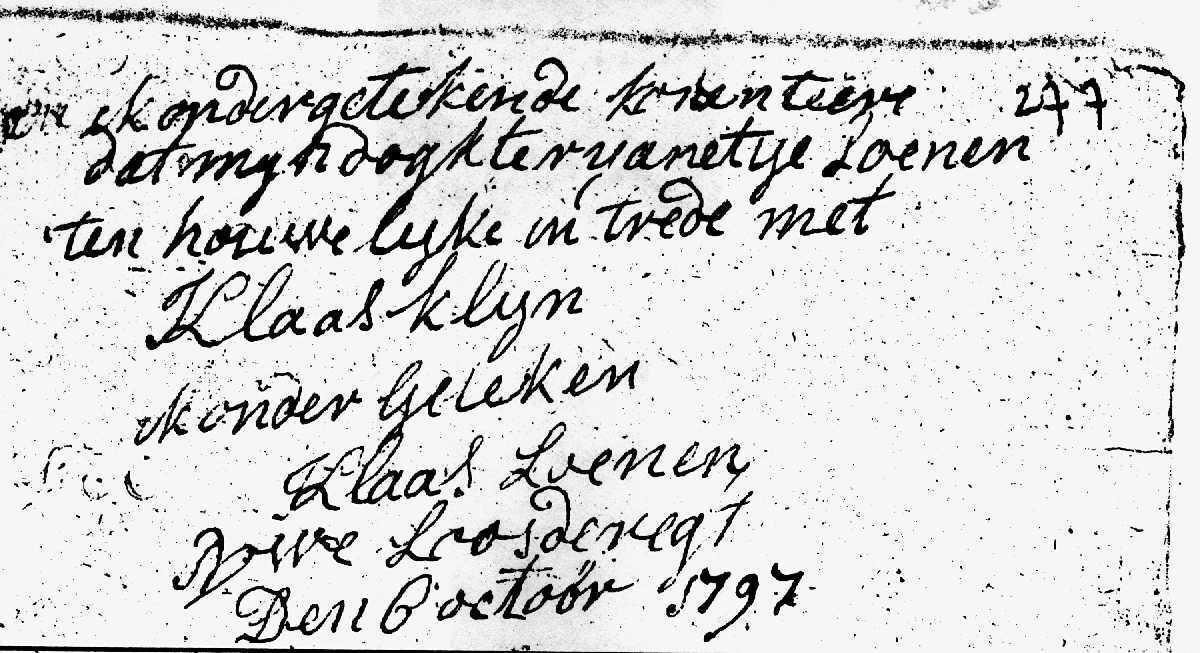 ik ondergetekende konsenteere 277
dat myn dogkter yanetye Loenen
ten houwe lyke in trede met
Klaas klyn
ik onder Geteken
Klaas Loenen
Nywe Loosderegt
Den 6 octobr 1797